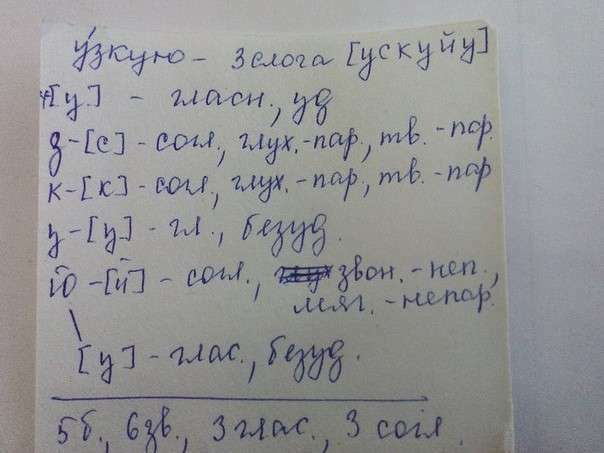 у́зкую – 3 слога [ускуйу]
у [у] – гласн., уд
з – [с] – согл., глух. – пар., тв. – пар.
к – [к] – согл., глух. – пар, тв. – пар
у – [у] – гл., безуд.
ю – [й] – согл., звон. – неп.,
мяг. – непар.
[у] – глас., безуд.
5б., 6зв., 3 глас., 3 согл.